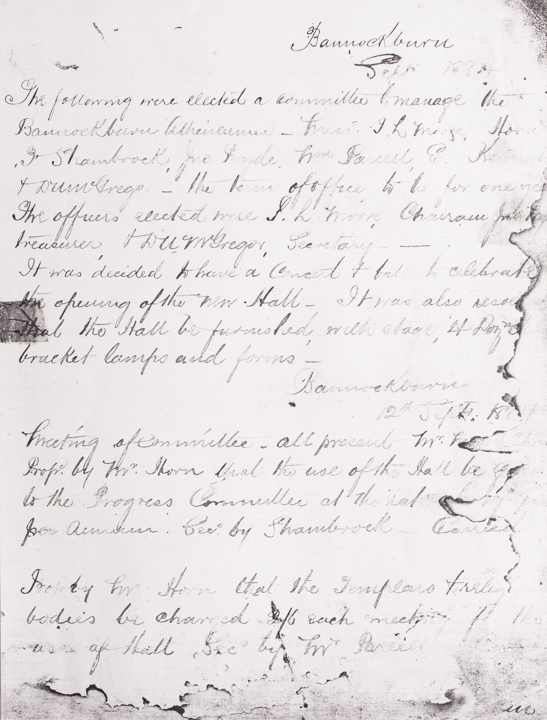 Bannockburn
Sept 1884
The following were elected a committee to manage the
Bannockburn Athenaeum – Messrs I L Horn
Shambrock, Jno Hyde, Wm Parcell, E.
& DuMcGregor – the term of office to be for one
The officers elected were Chairman
treasurer, & DuMcGregor, Secretary –
It was decided to have a Concert & ball to celebrate
the opening of the new Hall – It was also
that the Hall be furnished with stage, 4
bracket lamps and forms –
Bannockburn
12th Sept. 18
Meeting of committee – all present Mr.
Propd. by Mr. Horn that the use of the Hall be
to the Progress Committee at the rate
per Annum. Secd by Shambrock – Carried
Prop by Mr Horn that the Templars &
bodies be charged 2/6 each meeting for the
use of Hall Secd by Mr